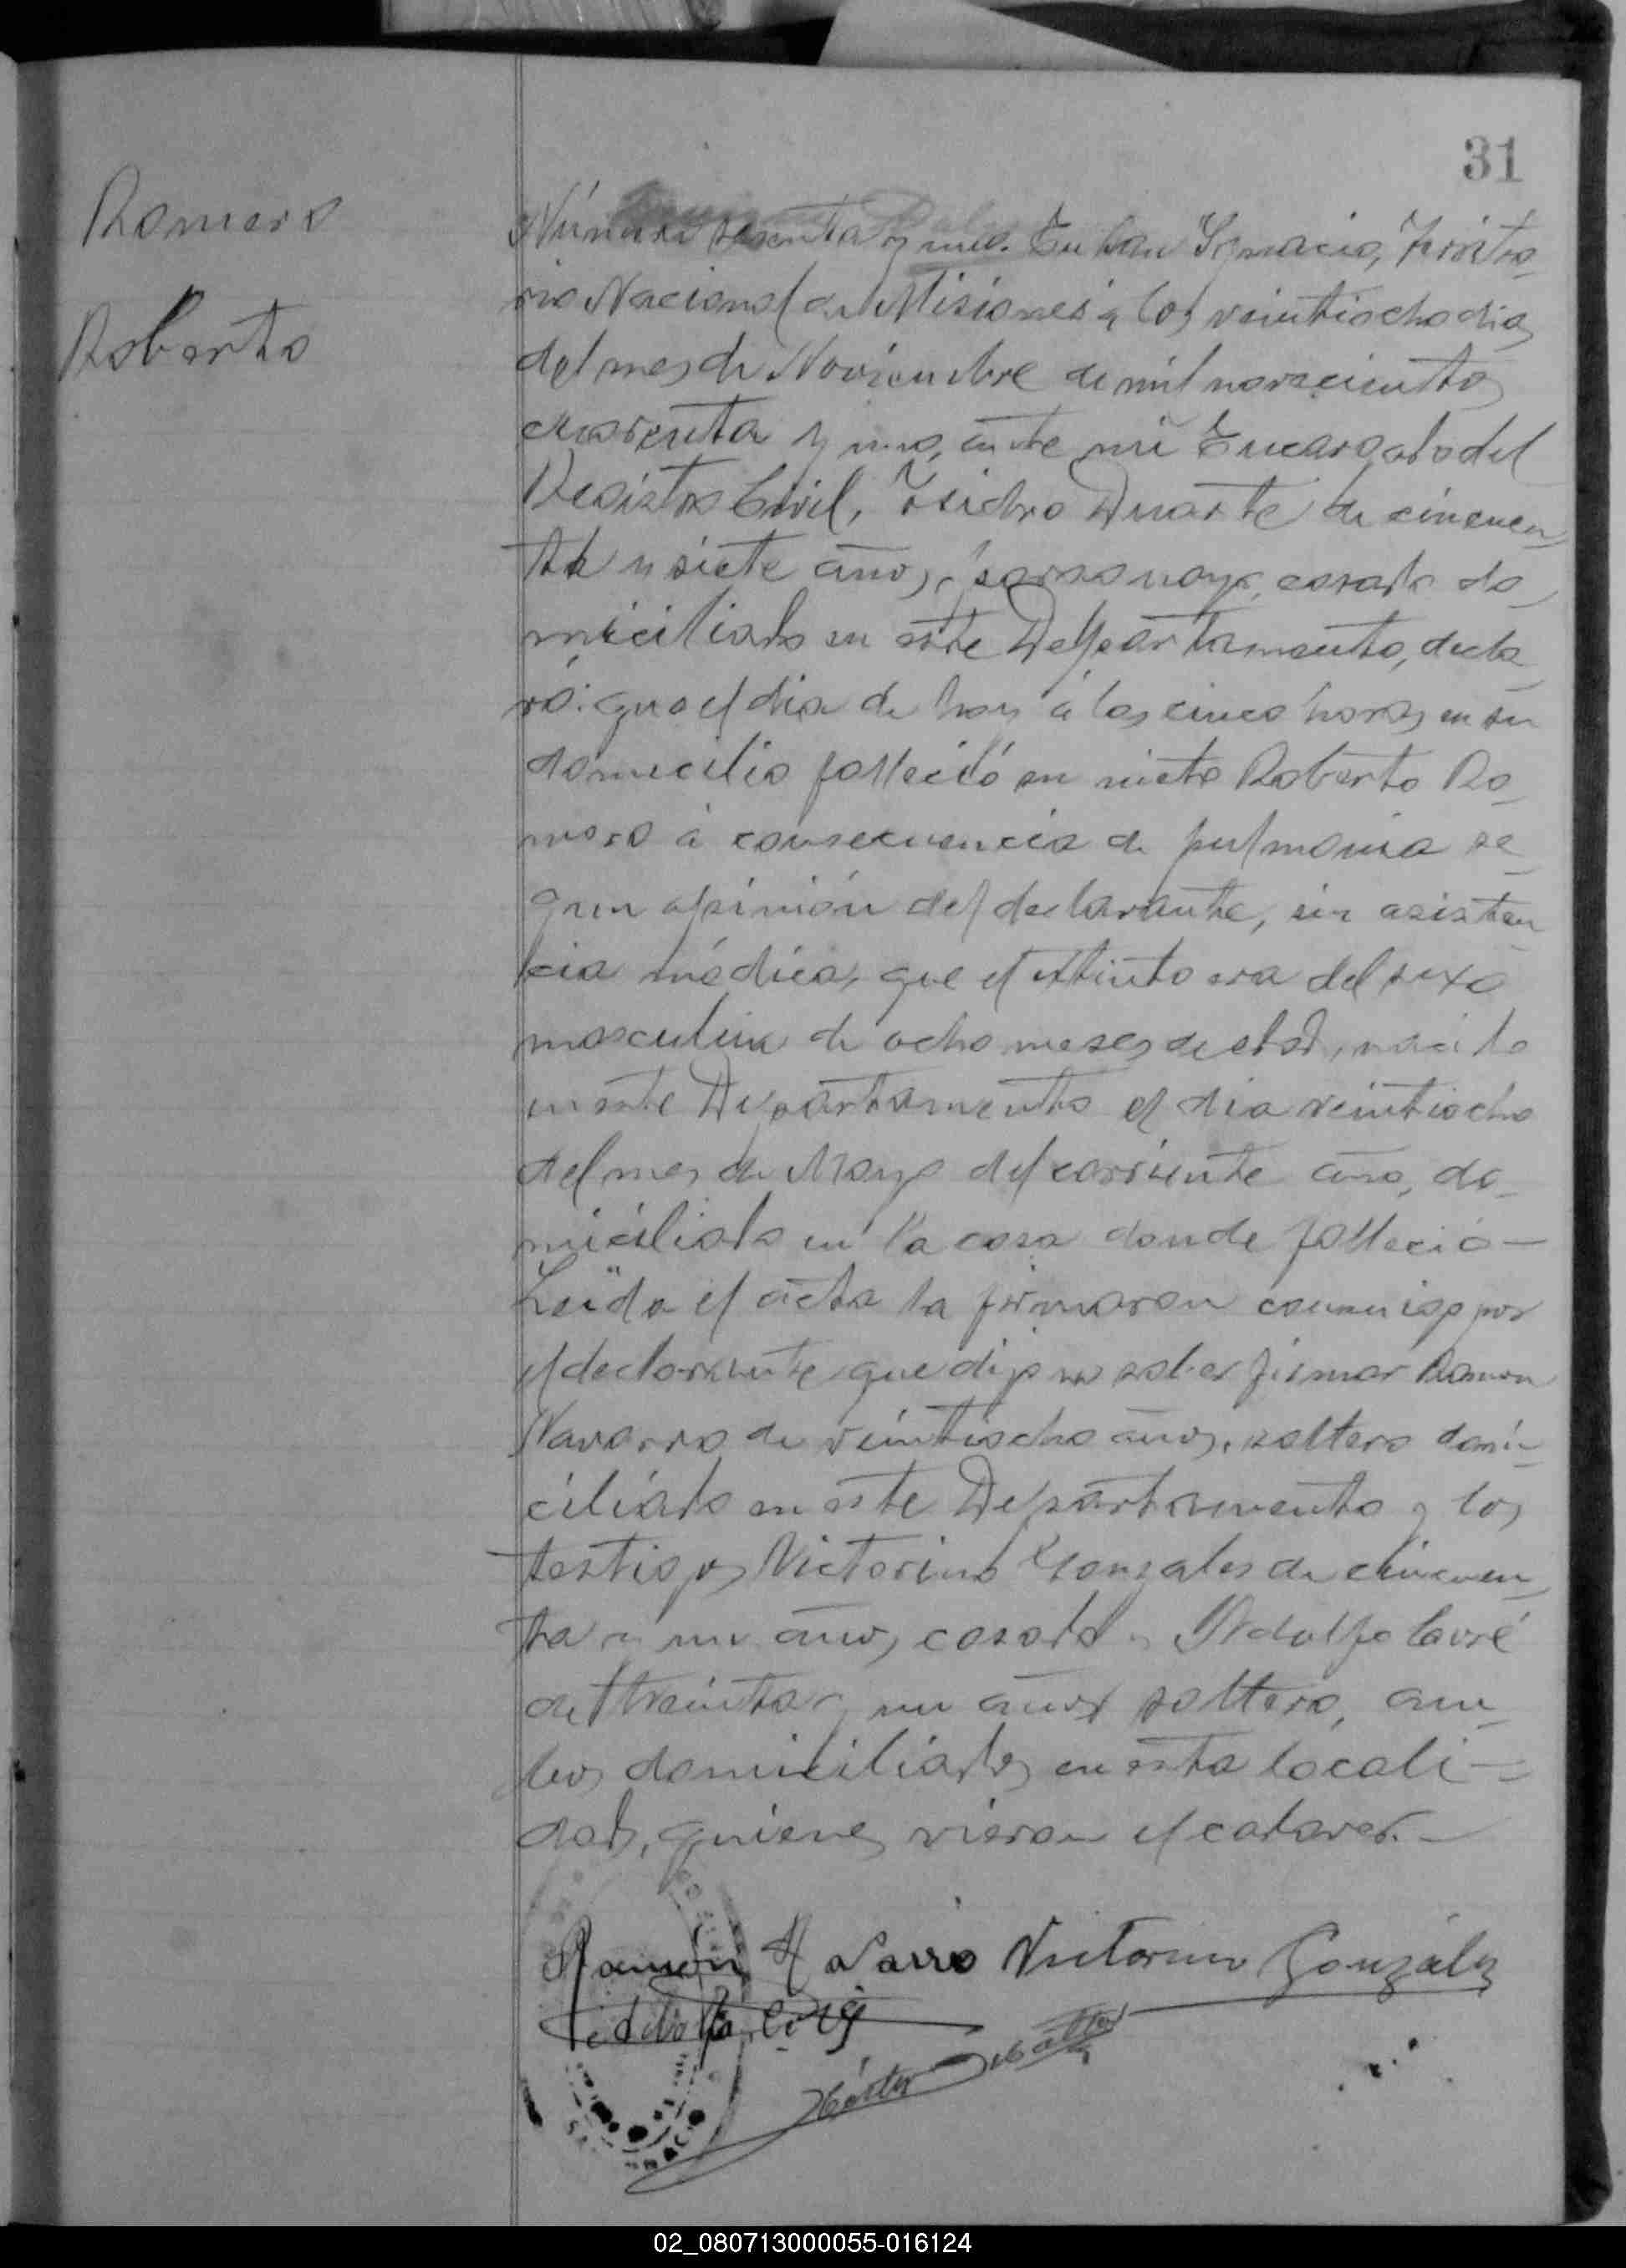 31
Romero
Roberto
Número sesenta y uno. En San Ignacio, Territo-
rio Nacional de Misiones a los veintiocho dias
del mes de Noviembre de mil novecientos
cuarenta y uno, ante mi Encargado del
Registro Civil, Isidro Duarte de cincuen-
ta y siete años, paraguayo, casado do-
miciliado en este Departamento, decla-
ró: que el dia de hoy á las cinco horas en su
domicilio falleció su nieto Roberto Ro-
mero á consecuencia de pulmonia se-
gun opinión del declarante, sin asisten-
cia médica, que el extinto era del sexo
masculino de ocho meses de edad, nacido
en este Departamento el dia veintiocho
del mes de Mayo del corriente año, do-
miciliado en la casa donde falleció—
Leída el acta la firmaron conmigo por
el declarante que dijo no saber firmar Ramon
Navarro de veintiocho años, soltero domi-
ciliado en este Departamento y los
testigos Victorino Gonzales de cincuen-
ta y un años, casado y Adolfo
de treinta y un años soltero, am-
bos domiciliados en esta locali-
dad, quienes vieron el cadaver.—
Ramón Navarro Victorino González
02_080713000055-016124